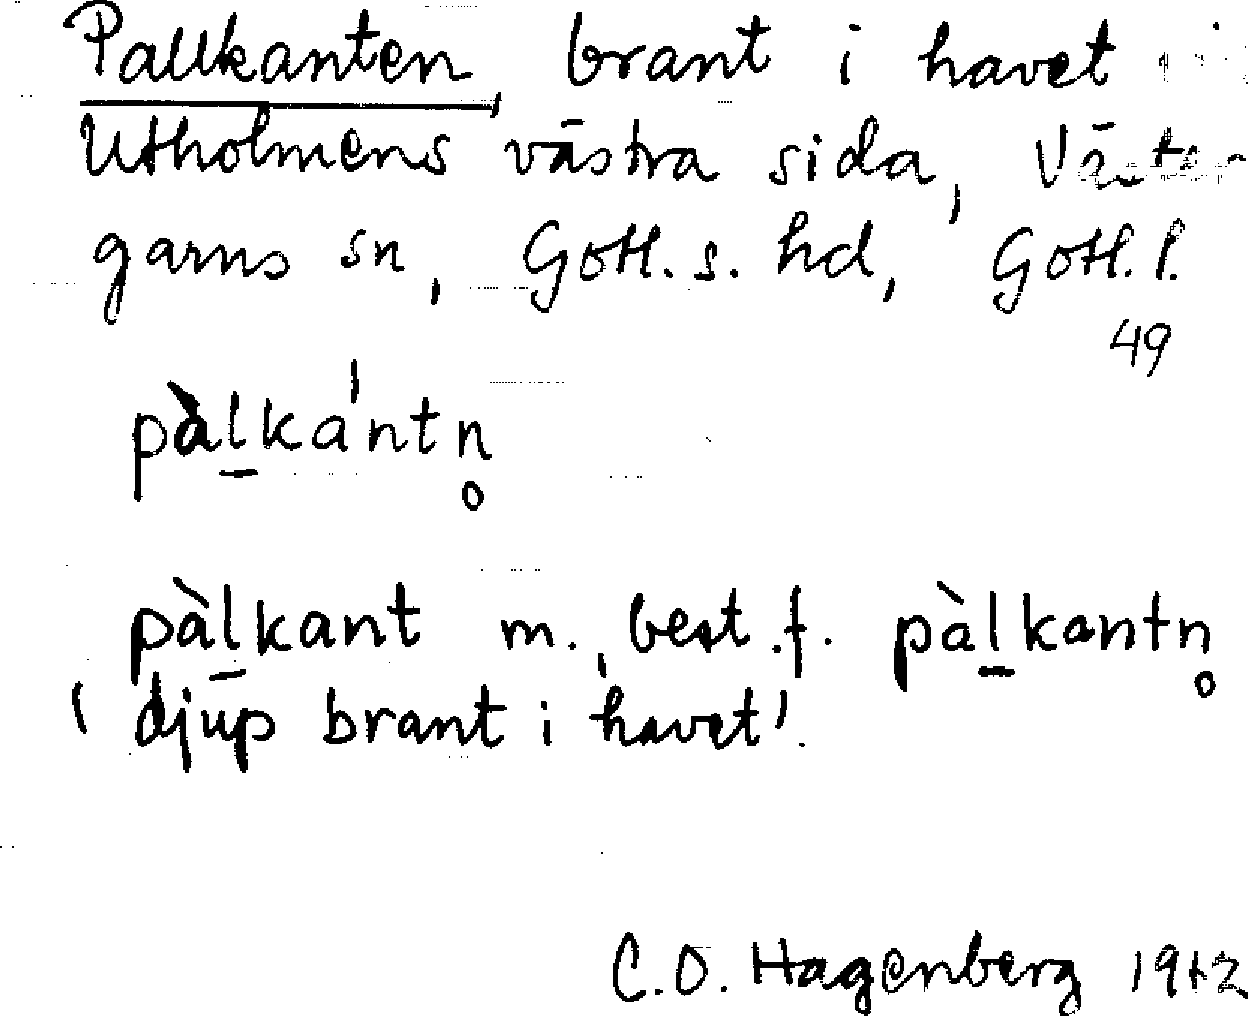 Pallkanten, brant i havet i
Utholmens västra sida, Väster-
garns sn, Gotl. s. hd, Gotl. l.
49
pàl̠ka'ntn̥
pàl̠kant m., best. f. pàl̠kantn̥
'djup brant i havet'.
C.O. Hagenberg